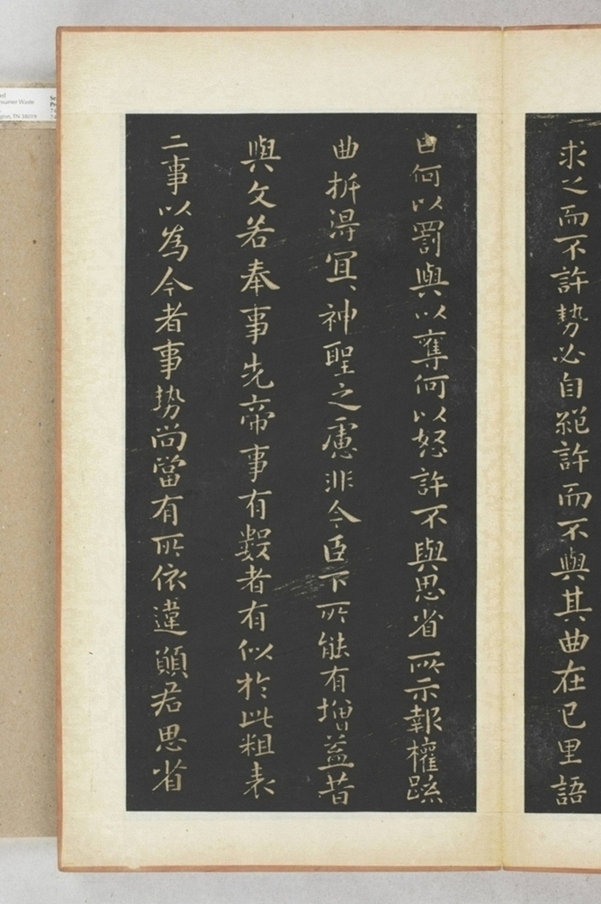 求之而不許勢必自絕許而不與其曲在己里語
曰何以罰與以奪何以怒許不與思省所示報權疏
曲折得冝神聖之慮非今臣下所能有增益昔
與文若奉事先帝事有數者有似於此粗表
二事以為今者事勢尚當有所依違願君思省
Waste
TN 38019